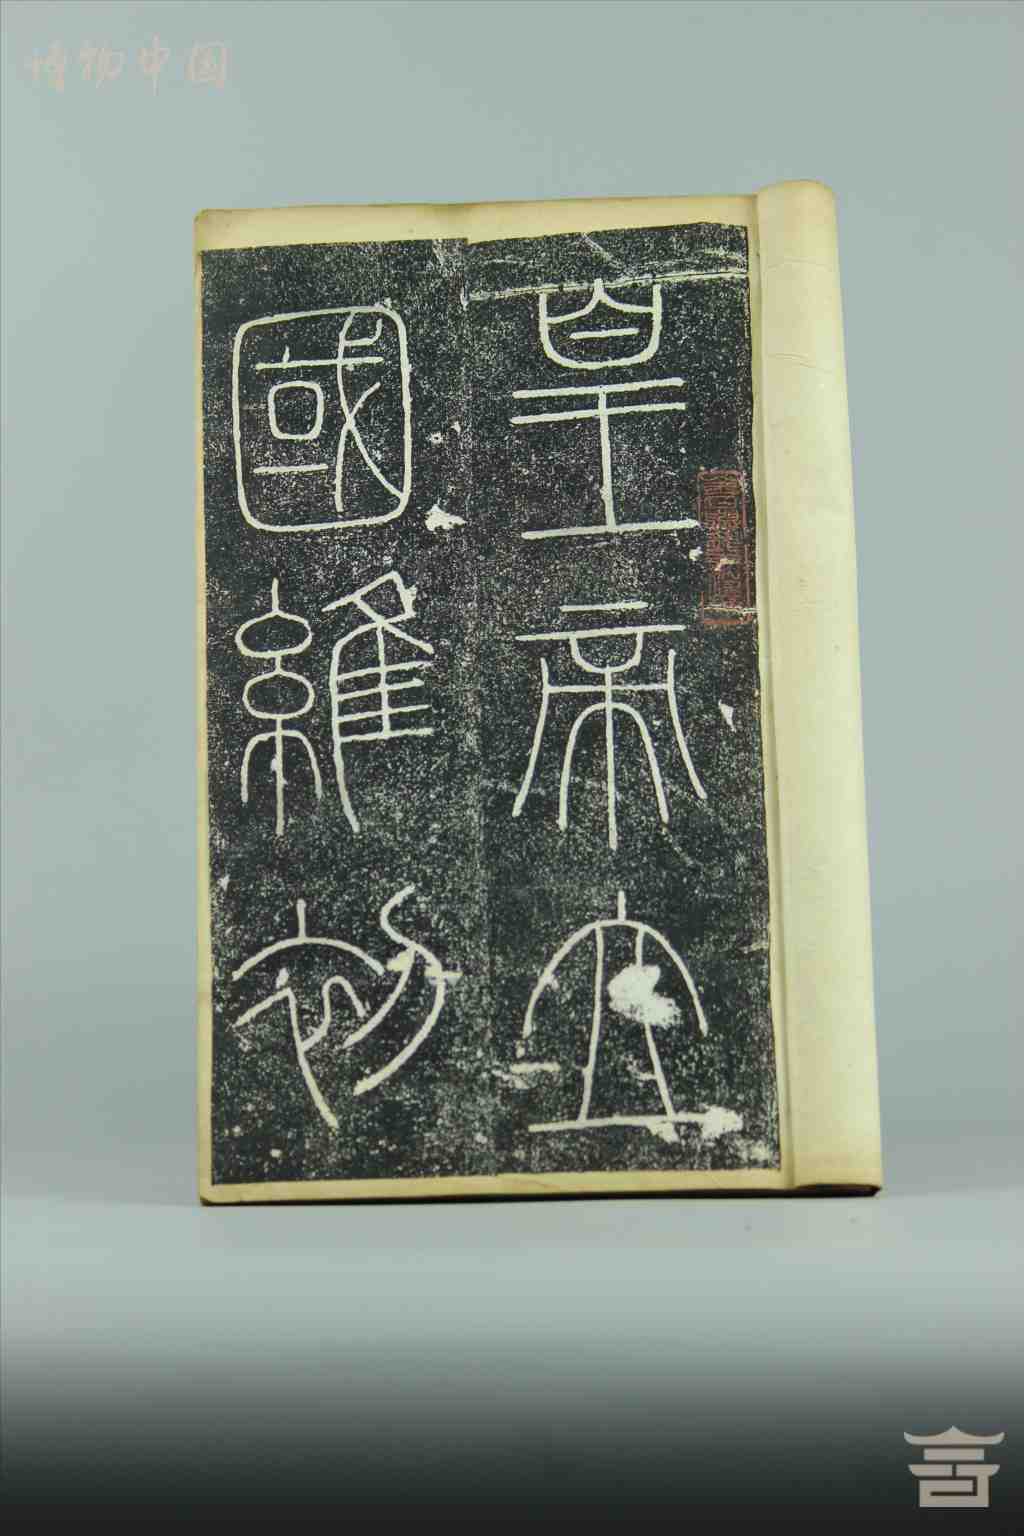 博物中国
皇帝立
國維初